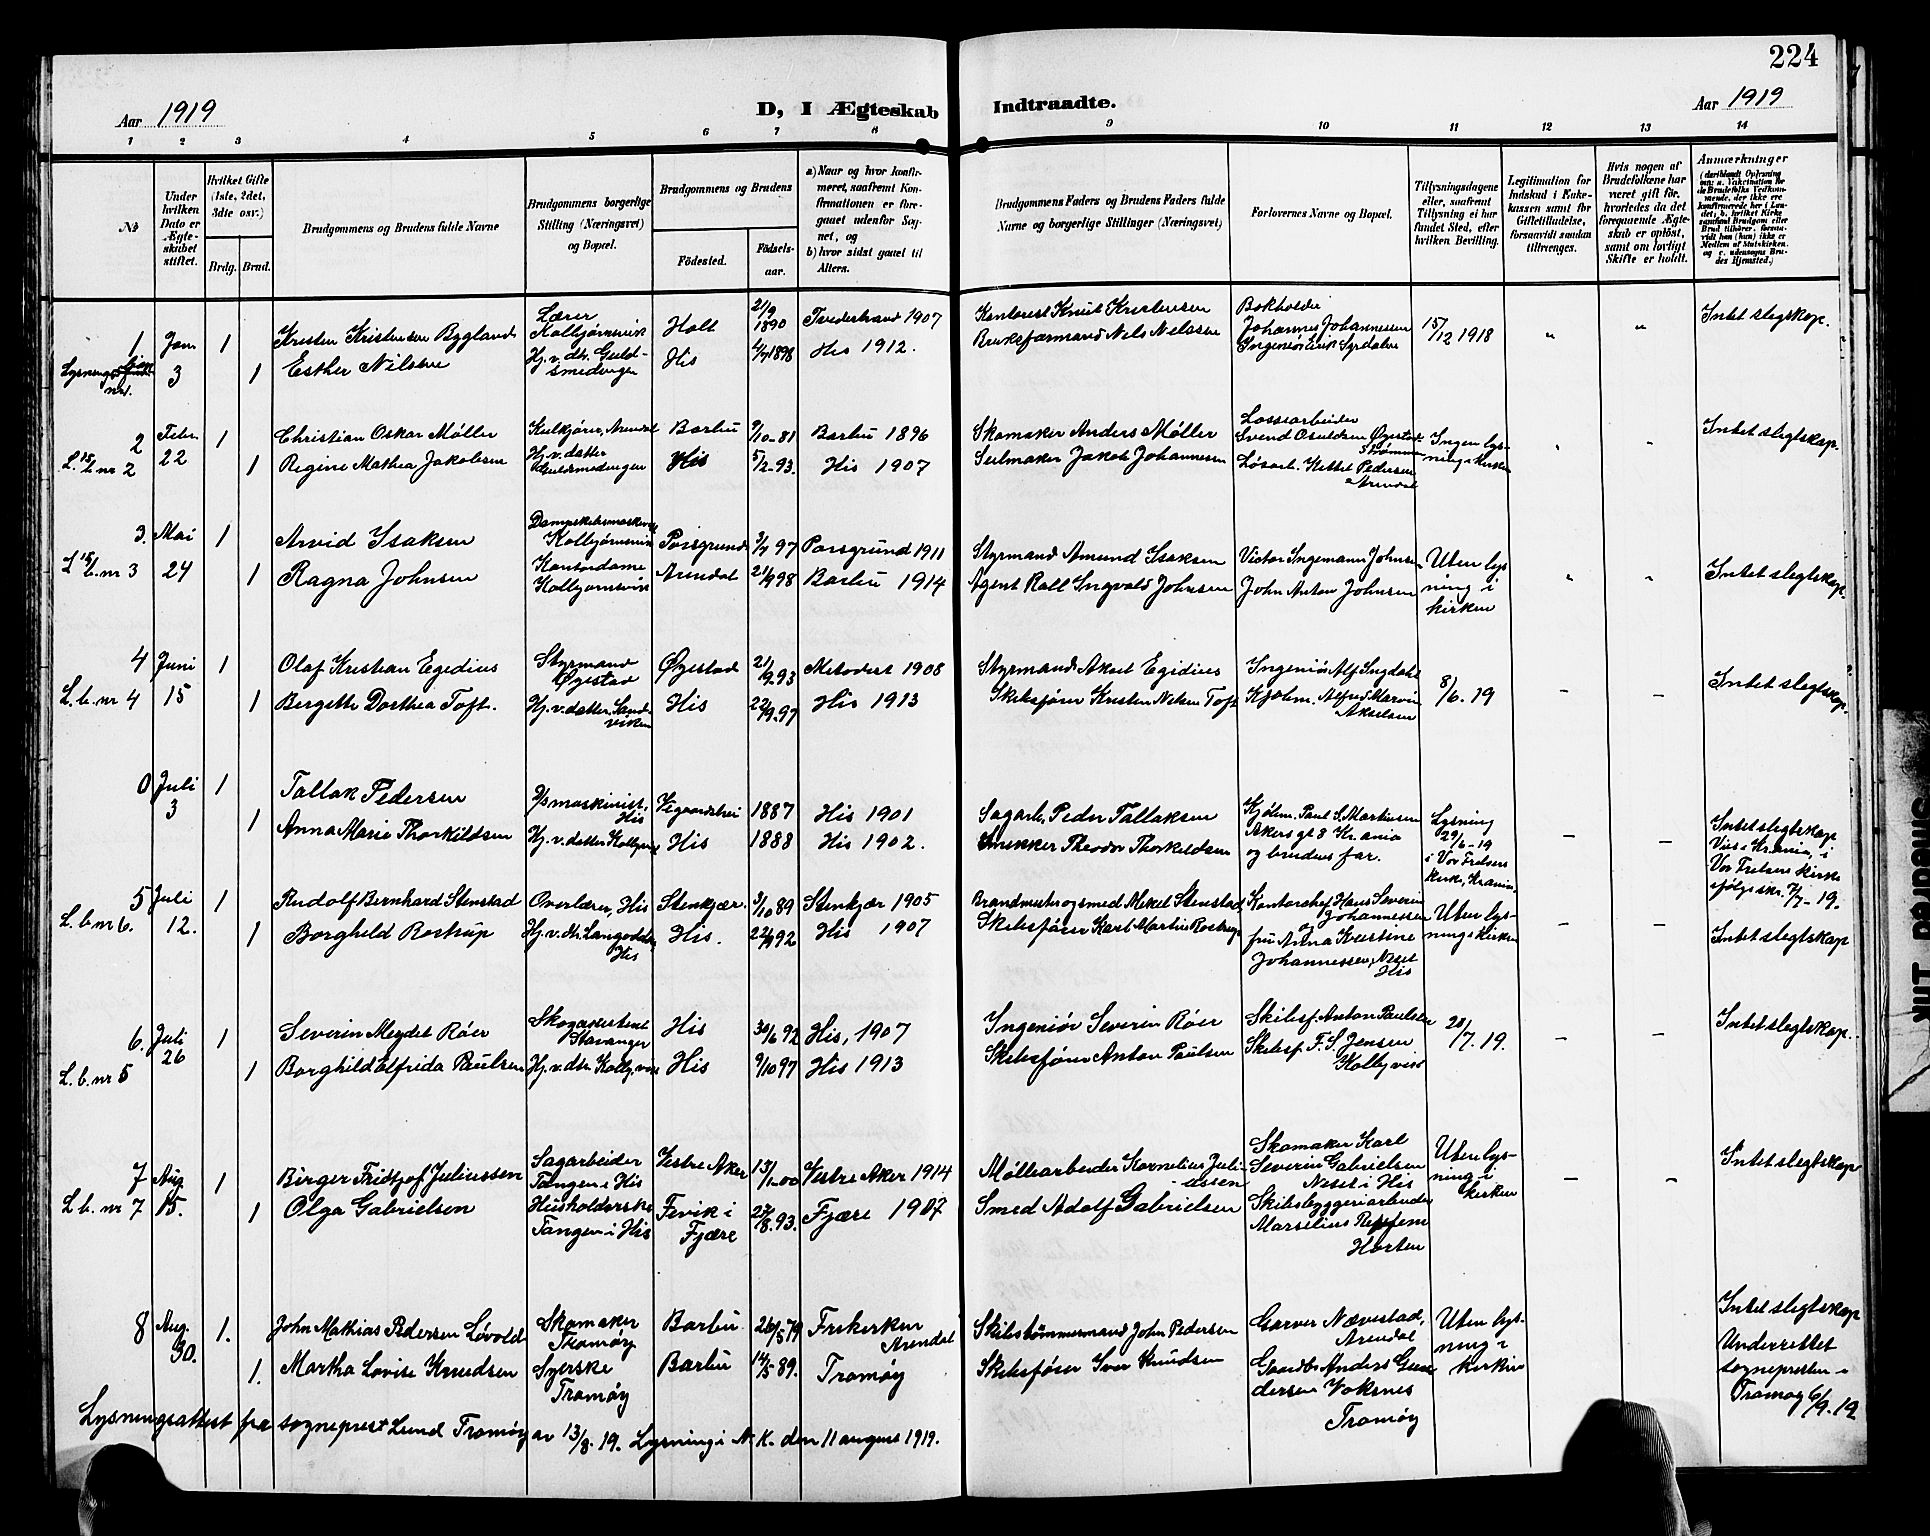 224
Aar 1919
D, I Ægteskab Indtraadte.
Aar 1919
1 2 3 4 5 6 7 8 9 10 11 12 13 14
№
Under hvilken Dato er Ægteskabet stiftet.
Hvilket Gifte (1ste, 2det, 3die osv.)
Brdg. Brud.
Brudgommens og Brudens fulde Navne
Brudgommens borgerlige Stilling (Næringsvei) og Bopæl.
Brudgommens og Brudens
Fødested.
Fødselsaar.
a) Naar og hvor konfirmeret, saafremt Konfirmationen er foregaaet udenfor Sognet, og
b) hvor sidst gaaet til Alters.
Brudgommens Faders og Brudens Faders fulde Navne og borgerlige Stillinger (Næringsvei)
Forlovernes Navne og Bopæl.
Tillysningsdagene eller, saafremt Tillysning ei har fundet Sted, efter hvilken Bevilling.
Legitimation for Indskud i Enkekassen samt for Giftetilladelse, forsaavidt saadan tiltrænges.
Hvis nogen af Brudefolkene har været gift før, hvorledes da det foregaaende Ægteskab er opløst, samt om lovligt Skifte er holdt.
Anmærkninger
1 Jan 3 1 Kristen Kristensen Bygland Lærer Kolbjørnsvik Holt 21/9 1890 Tvedestrand 1907 Knut Kristensen Bokholder Johannes Johannessen 15/12 1918 " " Intet slegtskap.
1 Esther Nilsen Hj. v. dtr. Guldsmedengen His 4/7 1898 His 1912. Bruksformand Nels Nelssen Ingeniør Erik Syrdalen
2 Febr 22 1 Christian Oskar Møller Kulkjører, Arendal Barbu 9/10-81 Barbu 1896 Skomaker Anders Møller Lossearbeider Svend Osuldsen Øyestad Ingen lysning i kirken " " Intet slegtskap.
L. b. nr 2 1 Regine Mathea Jakobsen Hj. v. datter Guldsmedengen His 5/2-93. His 1907 Seilmaker Jakob Johannesen Løsarb. Kittel Pedersen Arendal
3. Mai 24 1 Arvid Isaksen Kolbjørnsvik Porsgrund 3/7 97 Porsgrund 1911 Styrmand Amund Isaksen Victor Ingemann Johnsen Uten lysning i kirken " " Intet slegtskap.
L. b. nr 3 1 Ragna Johnsen Kontordame Kolbjørnsvik Arendal 21/9 98 Barbu 1914 Agent Rall Ingvald Johnsen John Anton Johnsen
4 Juni 15 1 Olaf Kristian Egedius Styrmand Øyestad Øyestad 21/9 93 Metodist 1908 Styrmand Aksel Egidius Ingeniør Alf Ingdahl 8/6. 19 – – Intet slegtskap.
L. b. nr 4 1 Bergitte Dorthea Toft. Hj. v. datter, Sandviken His 22/9. 97 His 1913 Skibsfører Kristen Nelsen Toft Kjøbm. Alfred Marvin Akselsen
0 Juli 3 1 Tallak Pedersen D/s maskinist, His Vegaardshei 1887 His 1901 Sagarb. Peder Tallaksen Kjøbm. Paul S. Martinsen Akersgt 8 Kr.ania og brudens far. Lysning 29/6-19 i Vor Frelsers kirke, Kr.ania – – Intet slegtskap Viet i Kr.ania, i Vor Frelsers kirke ifølge skr. 7/7. 19.
1 Anna Marie Thorkildsen Hj. v. datter Kolbjv. His 1888 His 1902. Snekker Theodor Thorkildsen
5 Juli 12. 1 Rudolf Bernhard Stenstad Overlærer, His Stenkjær. 3/10 89 Stenkjær 1905 Brandmester og smed Mikal Stenstad, Kontorchef Hans Severin Johannessen og Uten lysning i kirken – – Intet slegtskap
L. b. nr 6. 1 Borghild Rostrup Hj. v. dtr. Langodden His His. 22/9 92 His 1907 Skibsfører Karl Martin Rostrup fru Anna Kristine Johannessen, Nesset His
6. Juli 26 1 Severin Meydel Røer Skogassistent Stavanger His 30/6 92 His, 1907 Ingeniør Severin Røer Skibsf. Anton Paulsen 20/7. 19. – – Intet slegtskap.
L. b. nr 5 1 Borghild Elfrida Paulsen Hj. v. dtr. Kolbj.vik His 9/10 97 His 1913 Skibsfører Anton Paulsen Skibsf. F. S. Jensen Kolbj.vik
7 Aug 15. 1 Birger Fridtjof Juliussen Sagarbeider Tangen i His Vestre Aker 13/1-00 Vestre Aker 1914 Møllearbeider Kornelius Juliussen Skomaker Karl Severin Gabrielsen Nesset i His Uten lysning i kirken – – Intet slegtskap
L. b. nr 7 1 Olga Gabrielsen Husholderske Tangen i His Fevik i Fjære 27/8. 93. Fjære 1907 Smed Adolf Gabrielsen Skibsbyggeriarbeider Marselius Horten
8 Aug. 30. 1. John Mathias Pedersen Løvold Skomaker Tromøy Barbu 26/5 79 Frikirken Arendal Skibstømmermand John Pedersen Garver Nævestad, Arendal Uten lysning i kirken Intet slegtskap Underrettet sognepresten i Tromøy 6/9. 19
1. Martha Lovise Knudsen Syerske Tromøy Barbu 14/5 89. Tromøy Skibsfører Iver Knudsen Gaardbr. Anders Gundersen Voksnes Tromøy
Lysningsattest fra sogneprest Lund Tromøy av 13/8. 19. Lysning i N. K. den 11 august 1919.